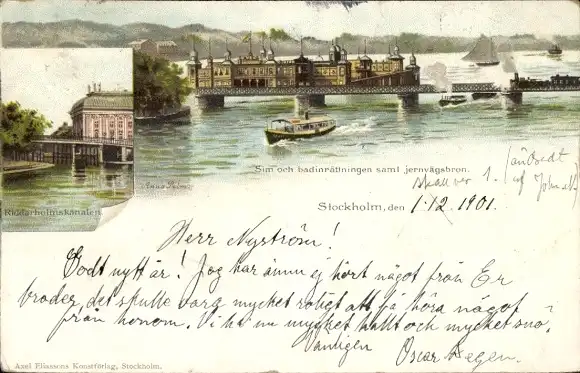 Sim och badinrättningen samt jernvägsbron.
Anna Palm
skall ver 1.
Riddarholmskanalen.
Stockholm, den 1/12 1901.
Herr Nyström!
Godt nytt år! Jag har ännu ej hört något från Er
broder, det skulle vara mycket roligt att få höra något
från honom. Vi ha nu mycket kallt och mycket snö.
Vänligen Oscar Hagen.
Axel Eliassons Konstförlag, Stockholm.